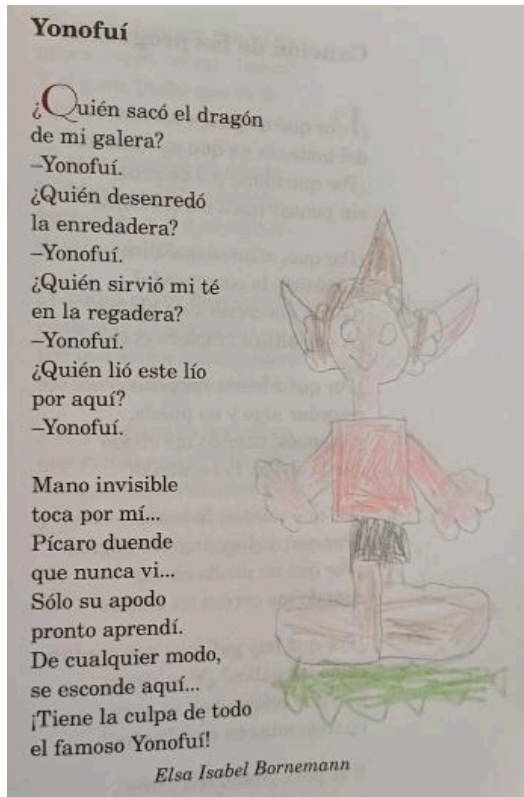 Yonofuí
¿Quién sacó el dragón
de mi galera?
–Yonofuí.
¿Quién desenredó
la enredadera?
–Yonofuí.
¿Quién sirvió mi té
en la regadera?
–Yonofuí.
¿Quién lió este lío
por aquí?
–Yonofuí.
Mano invisible
toca por mí...
Pícaro duende
que nunca vi...
Sólo su apodo
pronto aprendí.
De cualquier modo,
se esconde aquí...
¡Tiene la culpa de todo
el famoso Yonofuí!
Elsa Isabel Bornemann